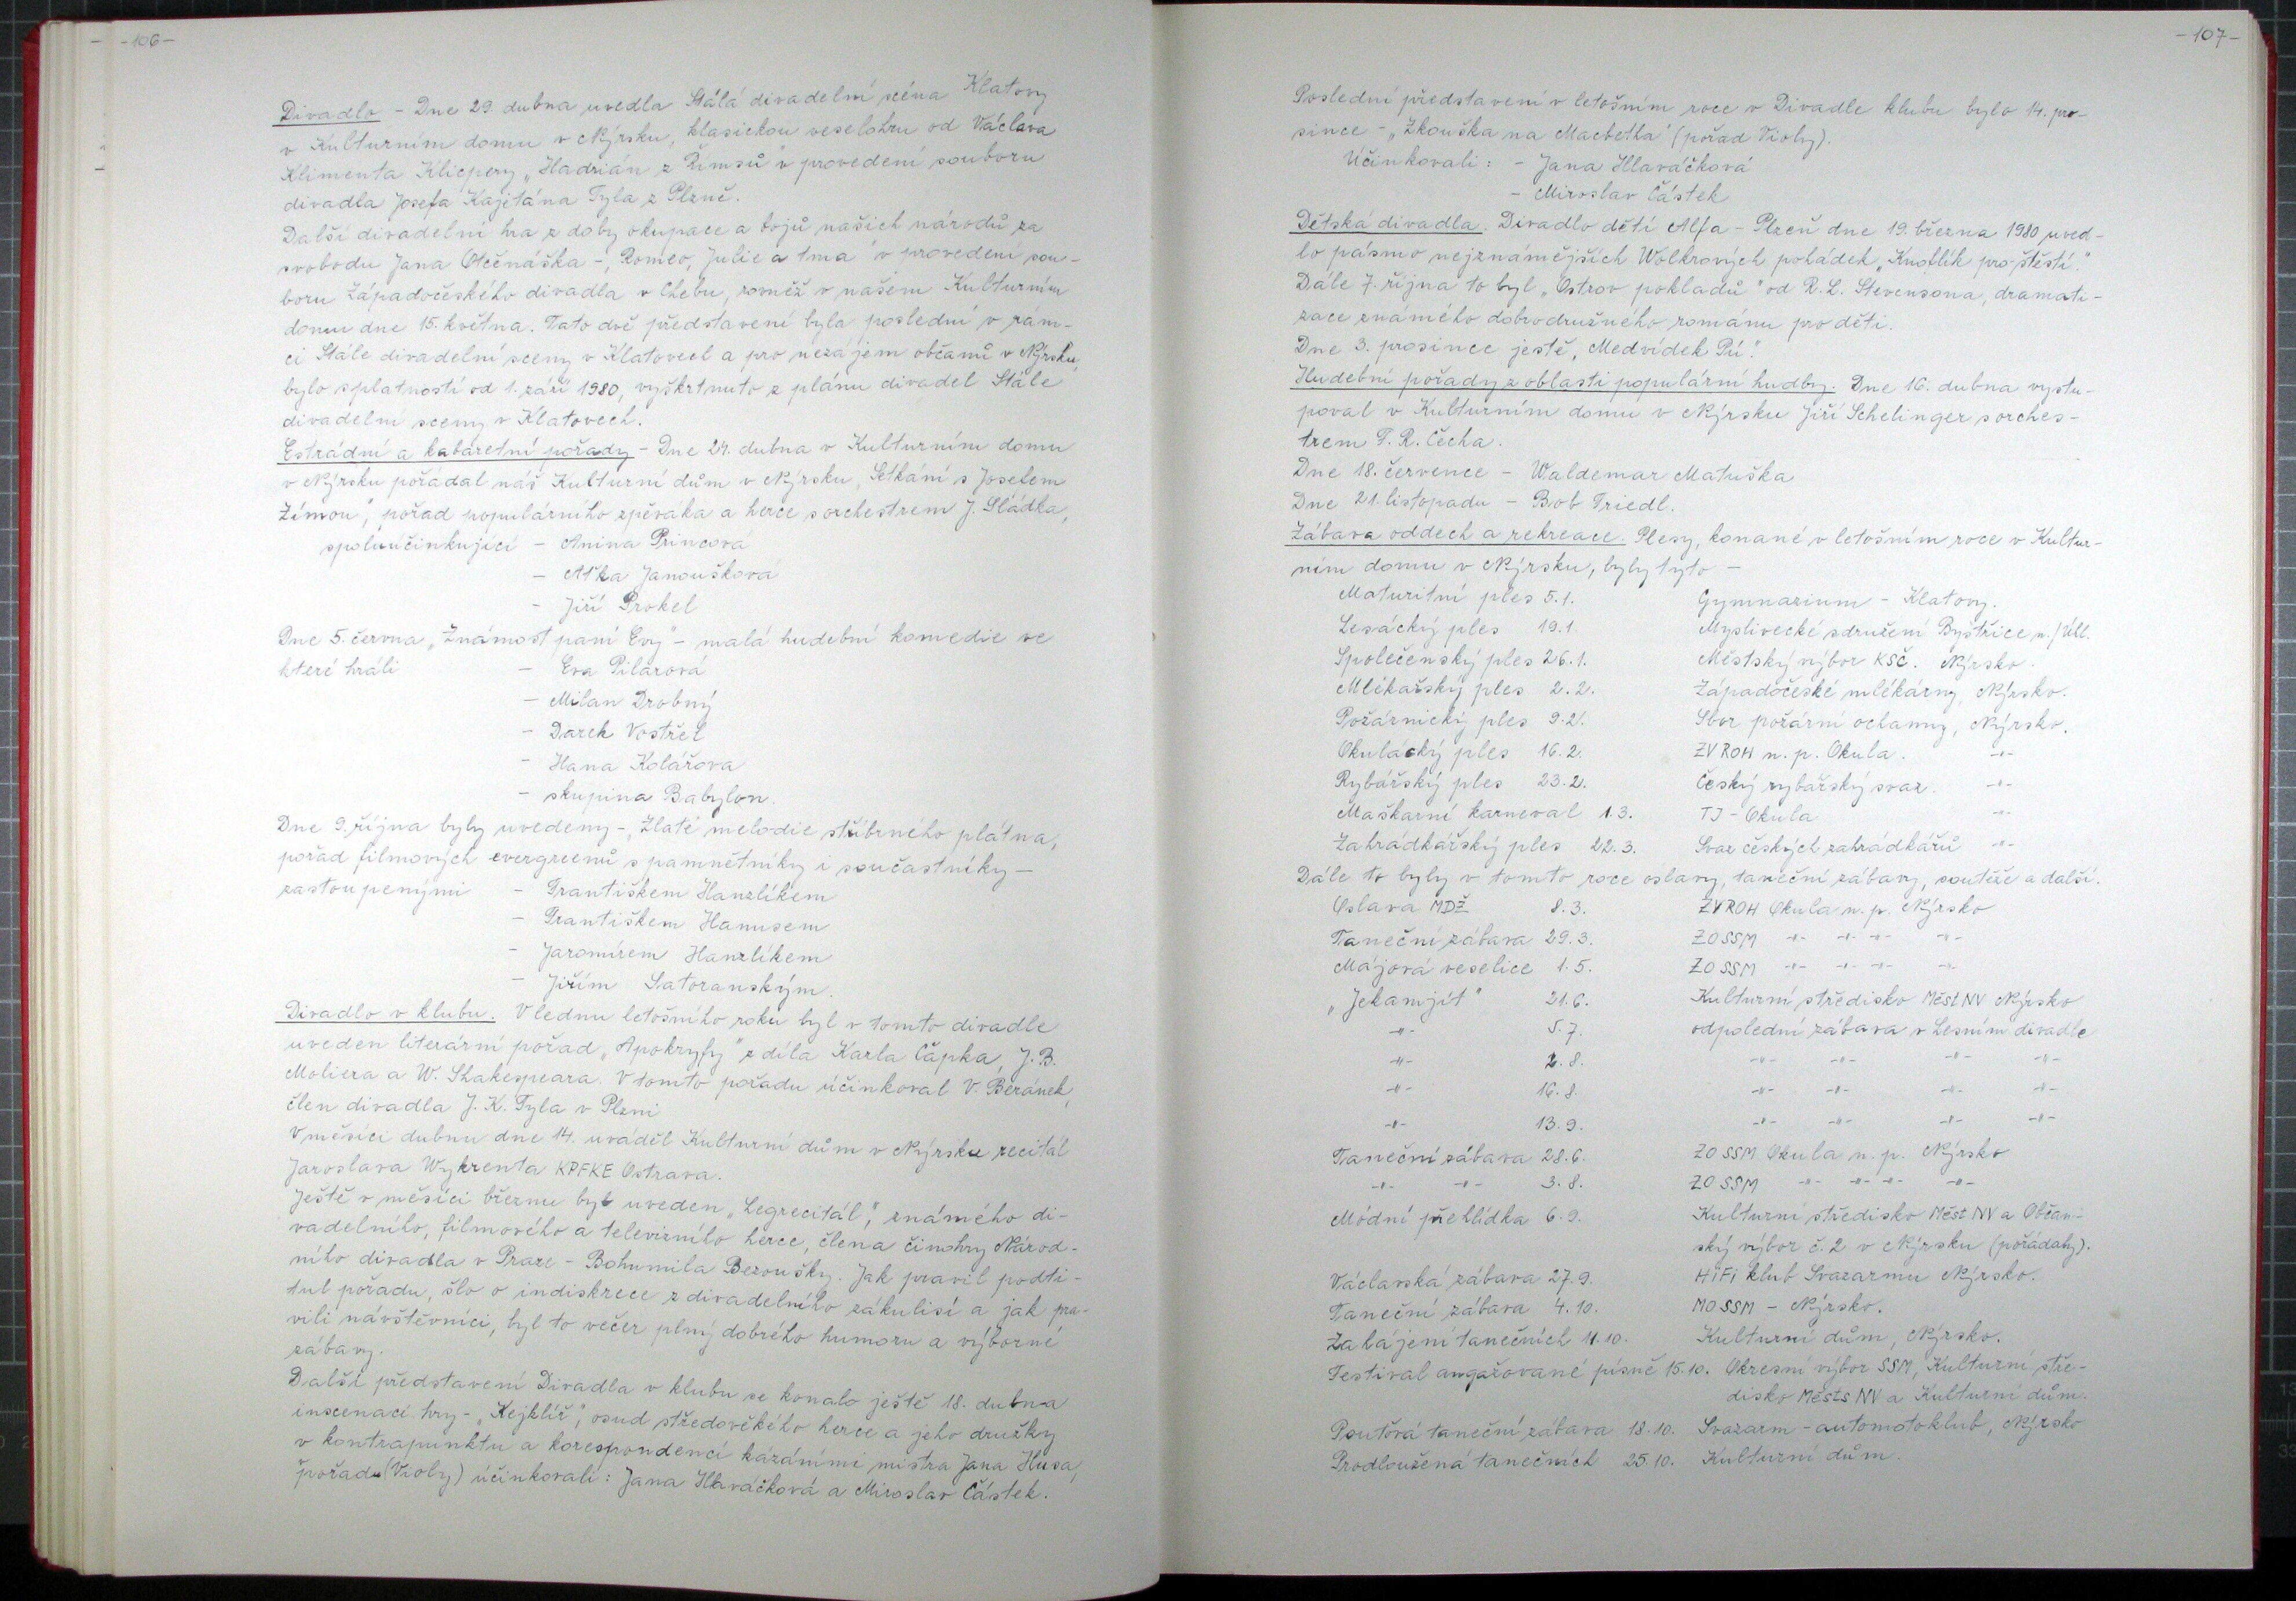 -106-
Divadlo - Dne 29. dubna uvedla Stálá divadelní scéna Klatovy
v Kulturním domu v Nýrsku, klasickou veselohru od Václava
Klimenta Klicpery „Hadrián z Římsů" v provedení souboru
divadla Josefa Kajetána Tyla z Plzně.
Další divadelní hra z doby okupace a bojů našich národů za
svobodu Jana Otčenáška -„Romeo, Julie a tma" v provedení sou-
boru Západočeského divadla v Chebu, rovněž v našem Kulturním
domu dne 15. května. Tato dvě představení byla poslední v rám-
ci Stále divadelní sceny v Klatovech a pro nezájem občanů v Nýrsku,
bylo splatností od 1. září 1980, vyškrtnuto z plánu divadel Stále
divadelní sceny v Klatovech.
Estrádní a kabaretní pořady - Dne 24. dubna v Kulturním domu
v Nýrsku pořádal náš Kulturní dům v Nýrsku „Setkání s Josefem
Zímou", pořad populárního zpěvaka a herce s orchestrem J. Sládka,
spoluúčinkující - Anina Princová
- Aťka Janoušková
- Jiří Prokel
Dne 5. června „Známost paní Evy" - malá hudební komedie ve
které hráli - Eva Pilarová
- Milan Drobný
- Darek Vostřel
- Hana Kolářova
- skupina Babylon.
Dne 9. října byly uvedeny -„Zlaté melodie stříbrného plátna,
pořad filmových evergreenů s pamnětníky i součastníky -
zastoupenými - Františkem Hanzlíkem
- Františkem Hanusem
- Jaromírem Hanzlíkem
- Jiřím Satoranským.
Divadlo v klubu. V lednu letošního roku byl v tomto divadle
uveden literární pořad „Apokryfy" z díla Karla Čapka, J. B.
Moliera a W. Shakespeara. V tomto pořadu účinkoval V. Beránek,
člen divadla J. K. Tyla v Plzni
V měsíci dubnu dne 14. uváděl Kulturní dům v Nýrsku recitál
Jaroslava Wykrenta KPFKE Ostrava.
Ještě v měsíci březnu byl uveden „Legrecitál", známého di-
vadelního, filmového a televizního herce, člena činohry Národ-
ního divadla v Praze - Bohumila Bezoušky. Jak pravil podti-
tul pořadu, šlo o indiskrece z divadelního zákulisí a jak pra-
vili návštěvníci, byl to večer plný dobrého humoru a výborné
zábavy.
Další představení Divadla v klubu se konalo ještě 18. dubna
inscenací hry -„Kejklíř", osud středověkého herce a jeho družky
v kontrapunktu a korespondencí kázáními mistra Jana Husa,
pořadu (Violy) účinkovali: Jana Hlaváčková a Miroslav Částek.
-107-
Poslední představení v letošním roce v Divadle klubu bylo 14. pro-
since - „Zkouška na Macbetha" (pořad Violy).
Účinkovali: - Jana Hlaváčková
- Miroslav Částek
Dětská divadla. Divadlo dětí Alfa - Plzeň dne 19. března 1980 uved-
lo pásmo nejznámějších Wolkrových pohádek „Knoflík pro štěstí."
Dále 7. října to byl „Ostrov pokladů" od R. L. Stevensona, dramati-
zace známého dobrodružného románu pro děti.
Dne 3. prosince ještě „Medvídek Pú".
Hudební pořady z oblasti populární hudby. Dne 16. dubna vystu-
poval v Kulturním domu v Nýrsku Jiří Schelinger s orches-
trem F. R. Čecha.
Dne 18. července - Waldemar Matuška
Dne 21. listopadu - Bob Friedl.
Zábava oddech a rekreace. Plesy, konané v letošním roce v Kultur-
ním domu v Nýrsku, byly tyto -
Maturitní ples 5.1. Gymnazium - Klatovy.
Lesácký ples 19.1 Myslivecké sdružení Bystřice n./Úhl.
Společenský ples 26.1. Městský výbor KSČ. Nýrsko.
Mlékařský ples 2.2. Západočeské mlékárny, Nýrsko.
Požárnický ples 9.2. Sbor požární ochanny, Nýrsko.
Okulácký ples 16.2. ZV ROH n. p. Okula. -"-
Rybářský ples 23.2. Český rybářský svaz. -"-
Maškarní karneval 1.3. TJ - Okula -"-
Zahrádkářský ples 22.3. Svaz českých zahrádkářů -"-
Dále to byly v tomto roce oslavy, taneční zábavy, soutěže a další.
Oslava MDŽ 8.3. ZVROH Okula n. p. Nýrsko
Taneční zábava 29.3. ZO SSM -"- -"- -"- -"-
Májová veselice 1.5. ZO SSM -"- -"- -"- -"-
„Jekamjít" 21.6. Kulturní středisko Měst NV Nýrsko
-"- 5.7. odpolední zábava v Lesním divadle
-"- 2.8. -"- -"- -"- -"-
-"- 16.8. -"- -"- -"- -"-
-"- 13.9. -"- -"- -"- -"-
Taneční zábava 28.6. ZO SSM Okula n. p. Nýrsko
-"- -"- 3.8. ZO SSM -"- -"- -"- -"-
Módní přehlídka 6.9. Kulturní středisko Měst NV a Občan-
ský výbor č. 2 v Nýrsku (pořádaly).
Václavská zábava 27.9. HiFi klub Svazarmu Nýrsko.
Taneční zábava 4.10. MO SSM - Nýrsko.
Zahájení tanečních 11.10. Kulturní dům, Nýrsko.
Festival angažované písně 15.10. Okresní výbor SSM, Kulturní stře-
disko Městs NV a Kulturní dům.
Poutová taneční zábava 18.10. Svazarm - automotoklub, Nýrsko
Prodloužená tanečních 25.10. Kulturní dům.